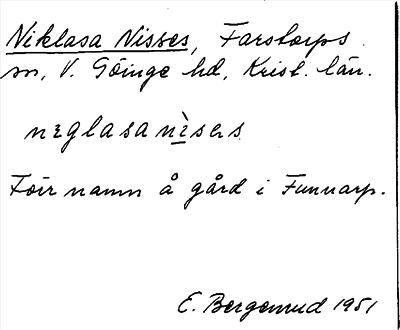 Niklasa Nisses, Farstorps
sn, V. Göinge hd, Krist. län.
nɪglasa nìsəs
Förr namn å gård i Funnarp.
E. Bergenrud 1951